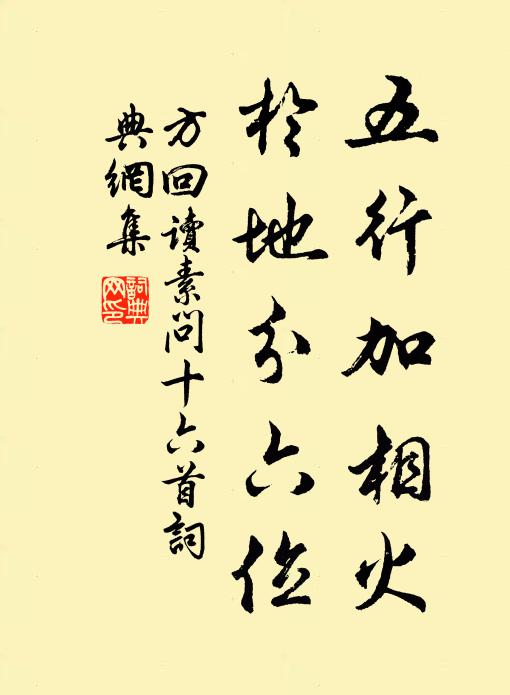 五行加相火
於地分六位
方回讀素問十六首詞
典網集
詞典
网印